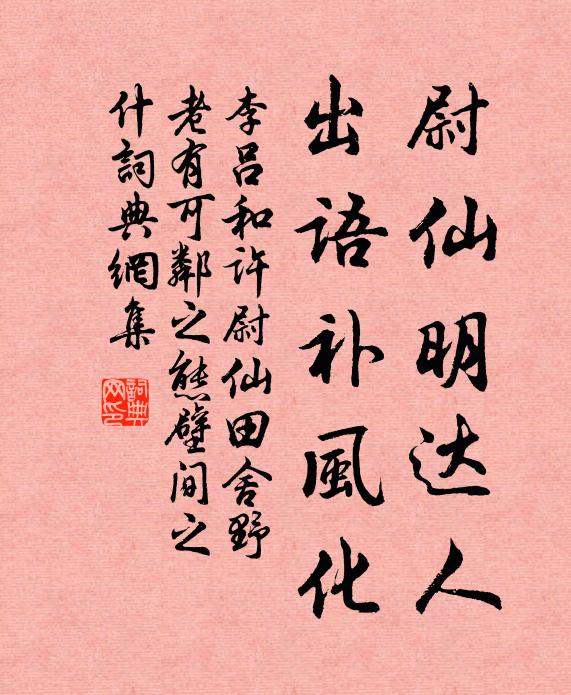 尉仙明达人
出语补風化
李吕和许尉仙田舍野
老有可鄰之態壁间之
什詞典網集
詞典网印